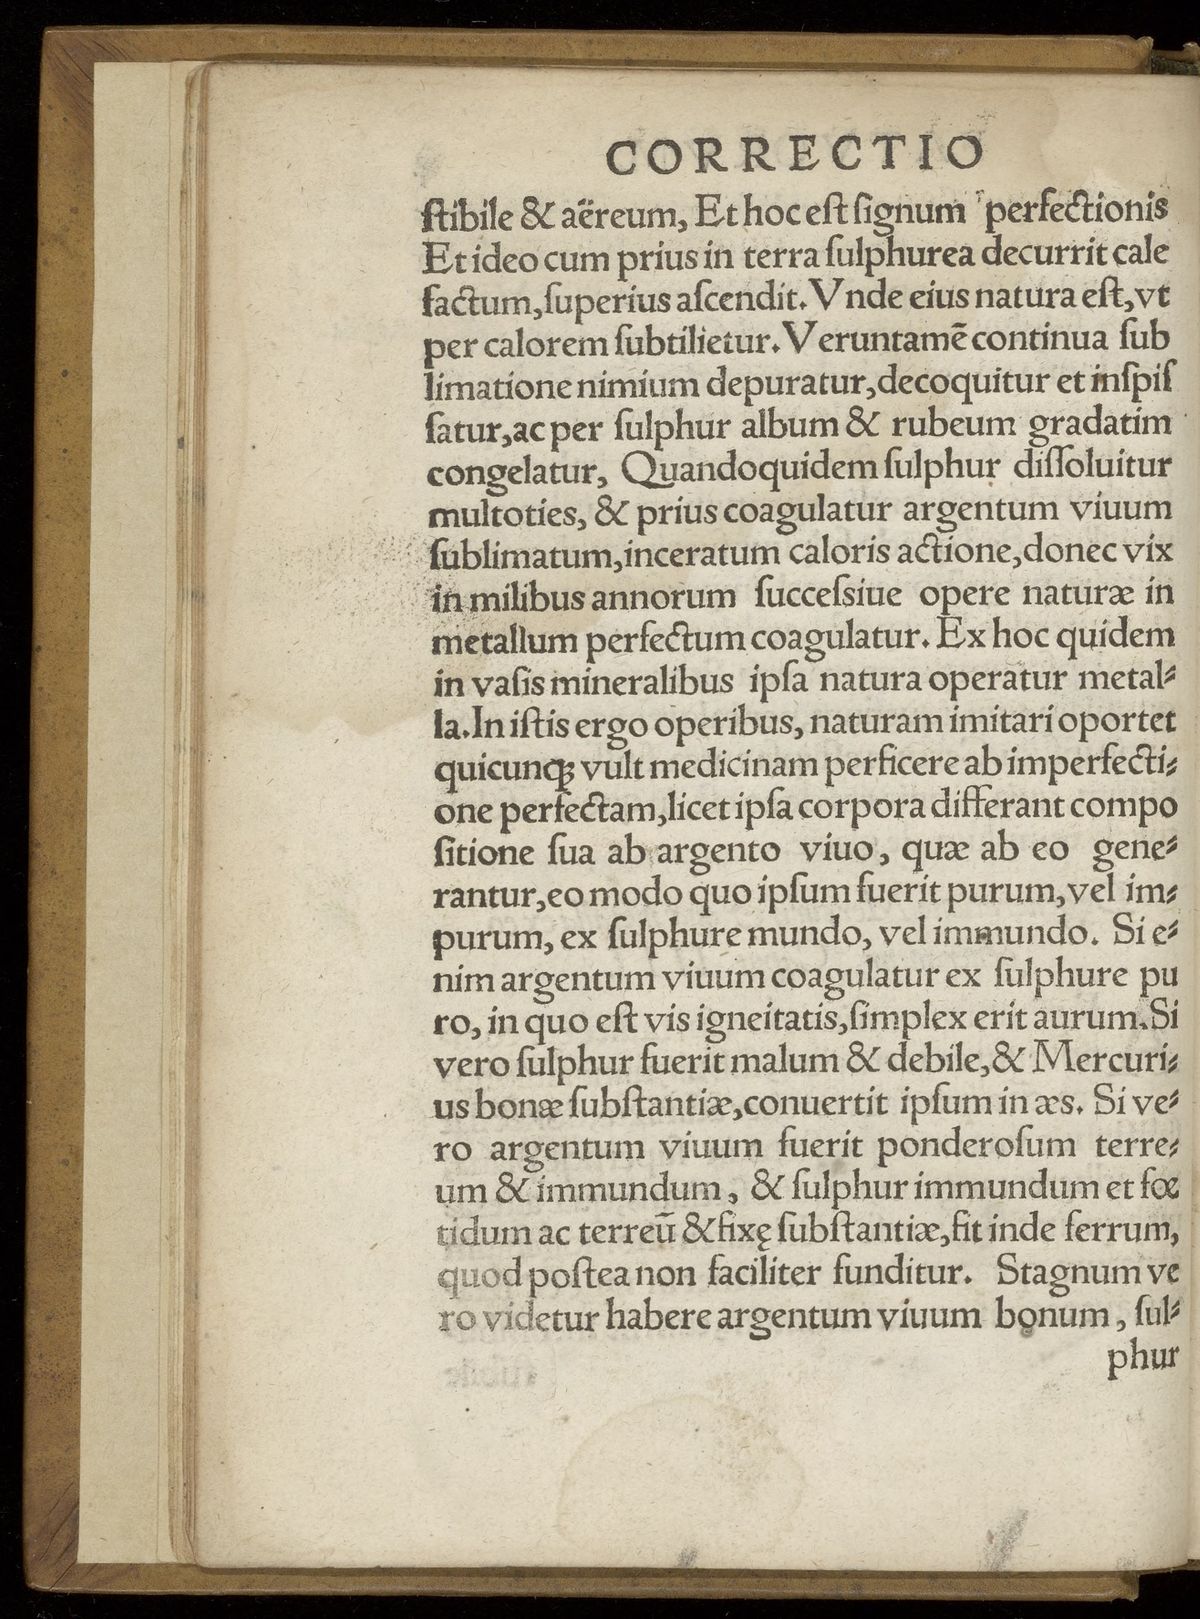 CORRECTIO
ſtibile & aëreum, Et hoc eſt ſignum perfectionis
Et ideo cum prius in terra ſulphurea decurrit cale
factum, ſuperius aſcendit. Vnde eius natura eſt, vt
per calorem ſubtilietur. Veruntamē continua ſub
limatione nimium depuratur, decoquitur et inſpiſ
ſatur, ac per ſulphur album & rubeum gradatim
congelatur, Quandoquidem ſulphur diſſoluitur
multoties, & prius coagulatur argentum viuum
ſublimatum, inceratum caloris actione, donec vix
in milibus annorum ſucceſsiue opere naturæ in
metallum perfectum coagulatur. Ex hoc quidem
in vaſis mineralibus ipſa natura operatur metal⸗
la. In iſtis ergo operibus, naturam imitari oportet
quicunqꝫ vult medicinam perficere ab imperfecti⸗
one perfectam, licet ipſa corpora differant compo
ſitione ſua ab argento viuo, quæ ab eo gene⸗
rantur, eo modo quo ipſum fuerit purum, vel im⸗
purum, ex ſulphure mundo, vel immundo. Si e⸗
nim argentum viuum coagulatur ex ſulphure pu
ro, in quo eſt vis igneitatis, ſimplex erit aurum. Si
vero ſulphur fuerit malum & debile, & Mercuri⸗
us bonæ ſubſtantiæ, conuertit ipſum in æs. Si ve⸗
ro argentum viuum fuerit ponderoſum terre⸗
um & immundum, & ſulphur immundum et fœ
tidum ac terreū & fixę ſubſtantiæ, fit inde ferrum,
quod poſtea non faciliter funditur. Stagnum ve
ro videtur habere argentum viuum bonum, ſul⸗
phur